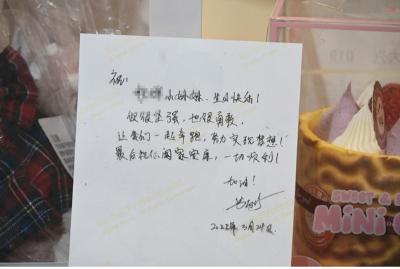 祝：
小妹妹、生日快乐！
你很坚强，也很勇敢，
让我们一起奔跑，努力实现梦想！
最后祝你阖家安康，一切顺利！
加油！
2022年3月29日
SWEET &
MiNi